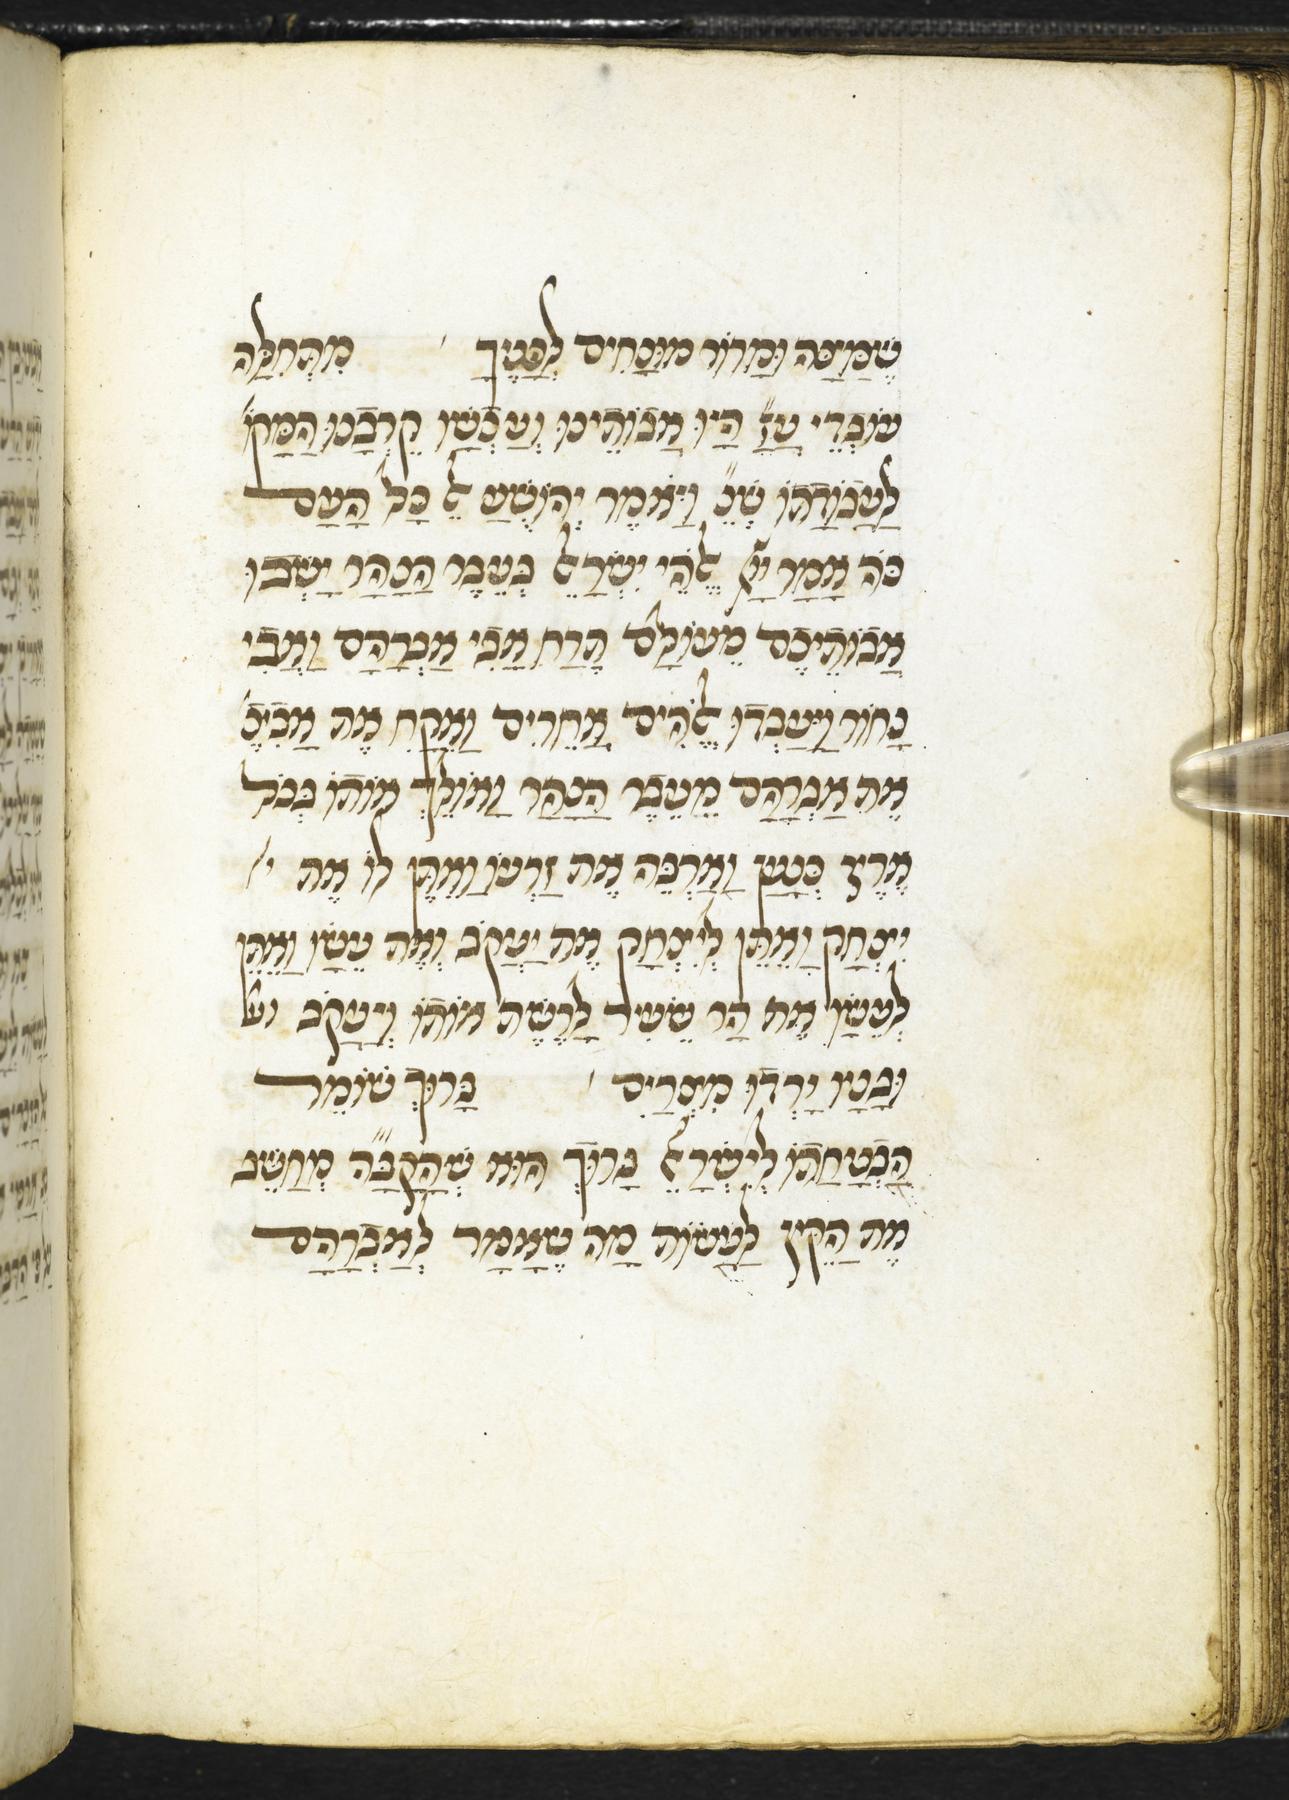 שֶׁמַּצָּה וּמָרוֹר מוּנָּחִים לְפָנֶיךָ מִתְּחִלָּה
עוֹבְדֵי עֲזָ״ הָיוּ אֲבוֹתֵינוּ וְעַכְשָׁו קֵרְבָנוּ הַמָּקוֹ׳
לַעֲבוֹדָתוֹ שֶׁנֶּ״ וַיֹּאמֶר יְהוֹשֻׁעַ אֶל כָּל הָעָם
כֹּה אָמַר יְיָ אֱלֹהֵי יִשְׂרָאֵל בְּעֵבֶר הַנָּהָר יָשְׁבוּ
אֲבוֹתֵיכֶם מֵעוֹלָם תֶּרַח אֲבִי אַבְרָהָם וַאֲבִי
נָחוֹר וַיַּעַבְדוּ אֱלֹהִים אֲחֵרִים וָאֶקַּח אֶת אֲבִיכֶ׳
אֶת אַבְרָהָם מֵעֵבֶר הַנָּהָר וָאוֹלֵךְ אוֹתוֹ בְּכֹל
אֶרֶץ כְּנָעַן וָאַרְבֶּה אֶת זַרְעוֹ וָאֶתֶּן לוֹ אֶת י׳
יִצְחָק וָאֶתֵּן לְיִצְחָק אֶת יַעֲקֹב וְאֶת עֵשָׂו וָאֶתֵּן
לְעֵשָׂו אֶת הַר שֵׂעִיר לָרֶשֶׁת אוֹתוֹ וְיַעֲקֹב
וּבָנָיו יָרְדוּ מִצְרַיִם בָּרוּךְ שׁוֹמֵר
הַבְטָחָתוֹ לְיִשְׂרָאֵל בָּרוּךְ הוּא שֶׁהַקָּבָּ״ה מְחַשֵּׁב
אֶת הַקֵּץ לַעֲשׂוֹת מַה שֶּׁאָמַר לְאַבְרָהָם